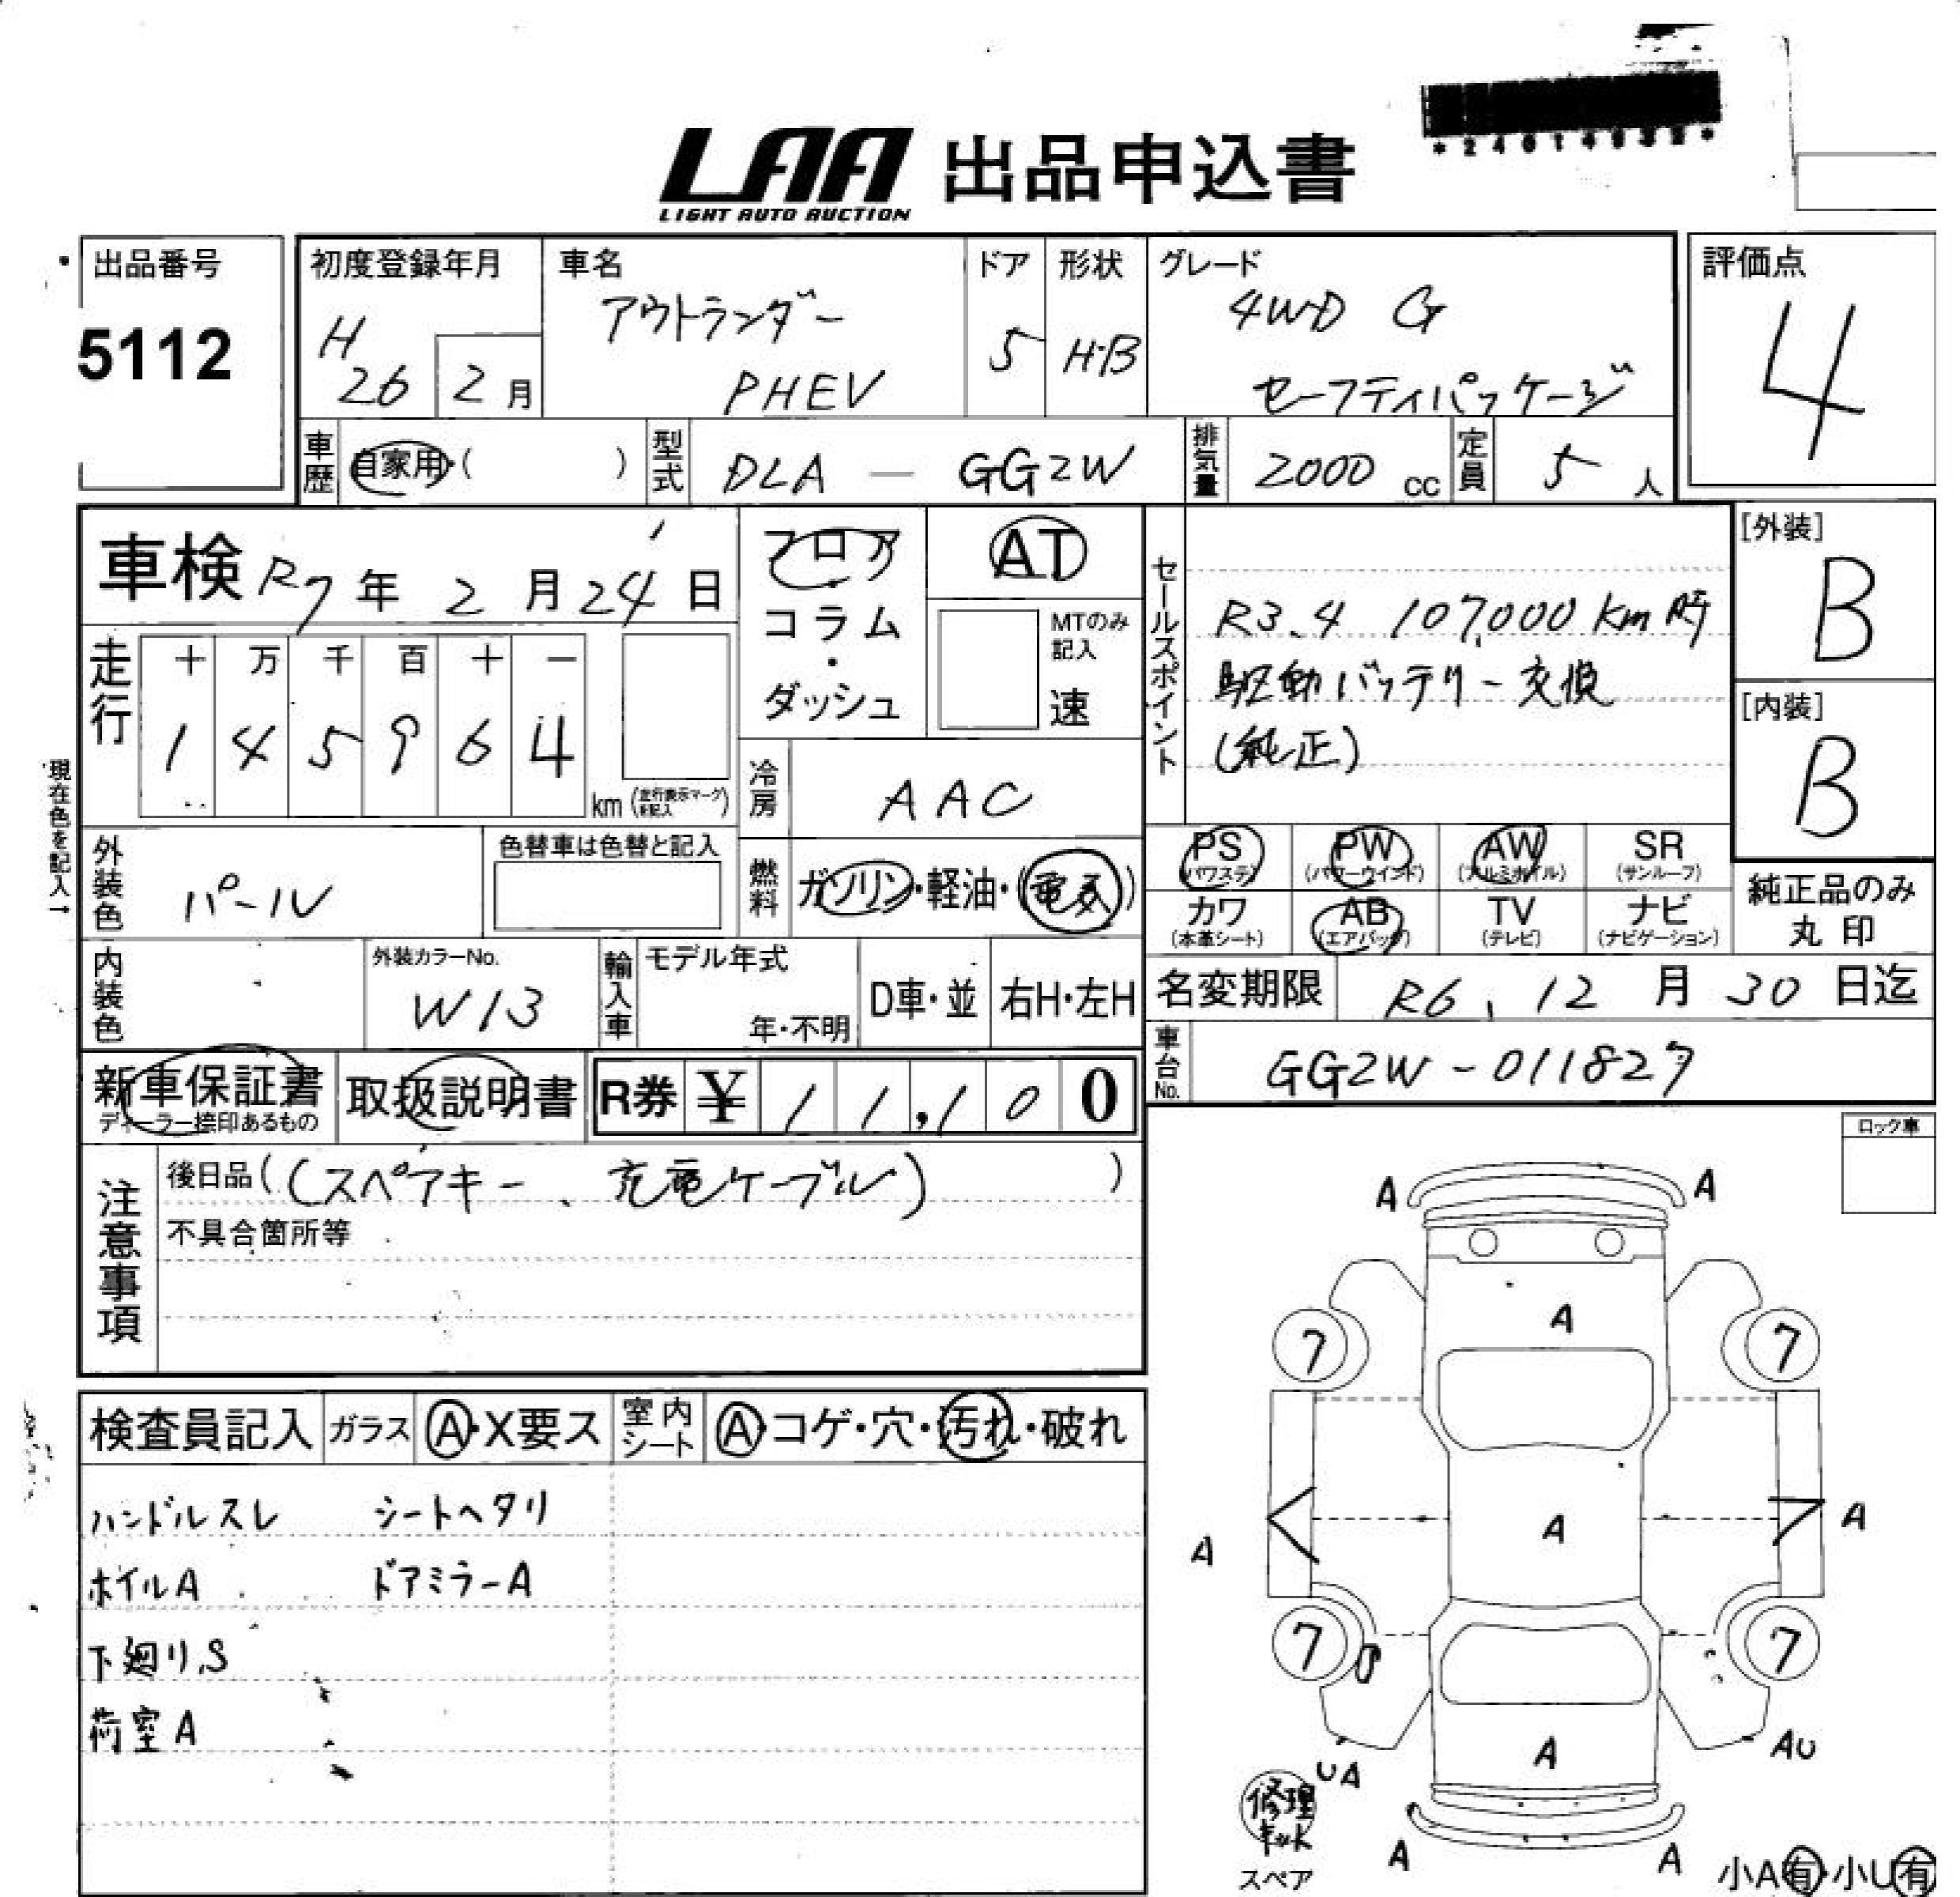 *24014932*
LAA 出品申込書
LIGHT AUTO AUCTION
出品番号
5112
初度登録年月
H
26 2月
車名
アウトランダー
PHEV
ドア
5
形状
H・B
グレード
4WD G
セーフティパッケージ
評価点
4
車歴 自家用・( )
型式 DLA - GG2W
排気量 2000 cc
定員 5 人
車検 R7年 2月24日
走行
十 万 千 百 十 一
1 4 5 9 6 4
km (走行表示マークを記入)
現在色を記入→
フロア
・
コラム
・
ダッシュ
AT
MTのみ
記入
速
冷房 AAC
燃料 ガソリン・軽油・(電気)
セールスポイント
R3.4 107,000 km時
駆動バッテリー交換
(純正)
[外装]
B
[内装]
B
外装色 パール
色替車は色替と記入
内装色
外装カラーNo.
W13
輸入車
モデル年式
年・不明
D車・並
右H・左H
PS
(パワステ)
PW
(パワーウインド)
AW
(アルミホイル)
SR
(サンルーフ)
カワ
(本革シート)
AB
(エアバッグ)
TV
(テレビ)
ナビ
(ナビゲーション)
純正品のみ
丸印
名変期限 R6.12月30日迄
車台No. GG2W-011827
新車保証書
ディーラー捺印あるもの
取扱説明書
R券 ¥ 11,100
注意事項
後日品((スペアキー、充電ケーブル) )
不具合箇所等
ロック車
検査員記入 ガラス A・X要ス 室内シート A・コゲ・穴・汚れ・破れ
ハンドルスレ シートヘタリ
ホイルA ドアミラーA
下廻り,S
荷室A
A A
A
7 7
A A A
7 7
A
UA AU
修理
キット
スペア
A A
小A有・小U有